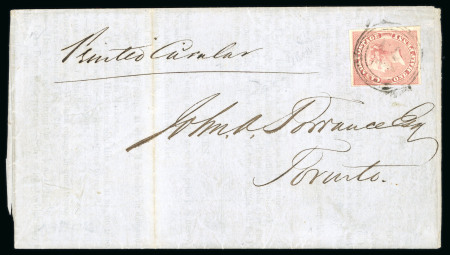 Printed Circular
John. A. Torrance Esq
Toronto.